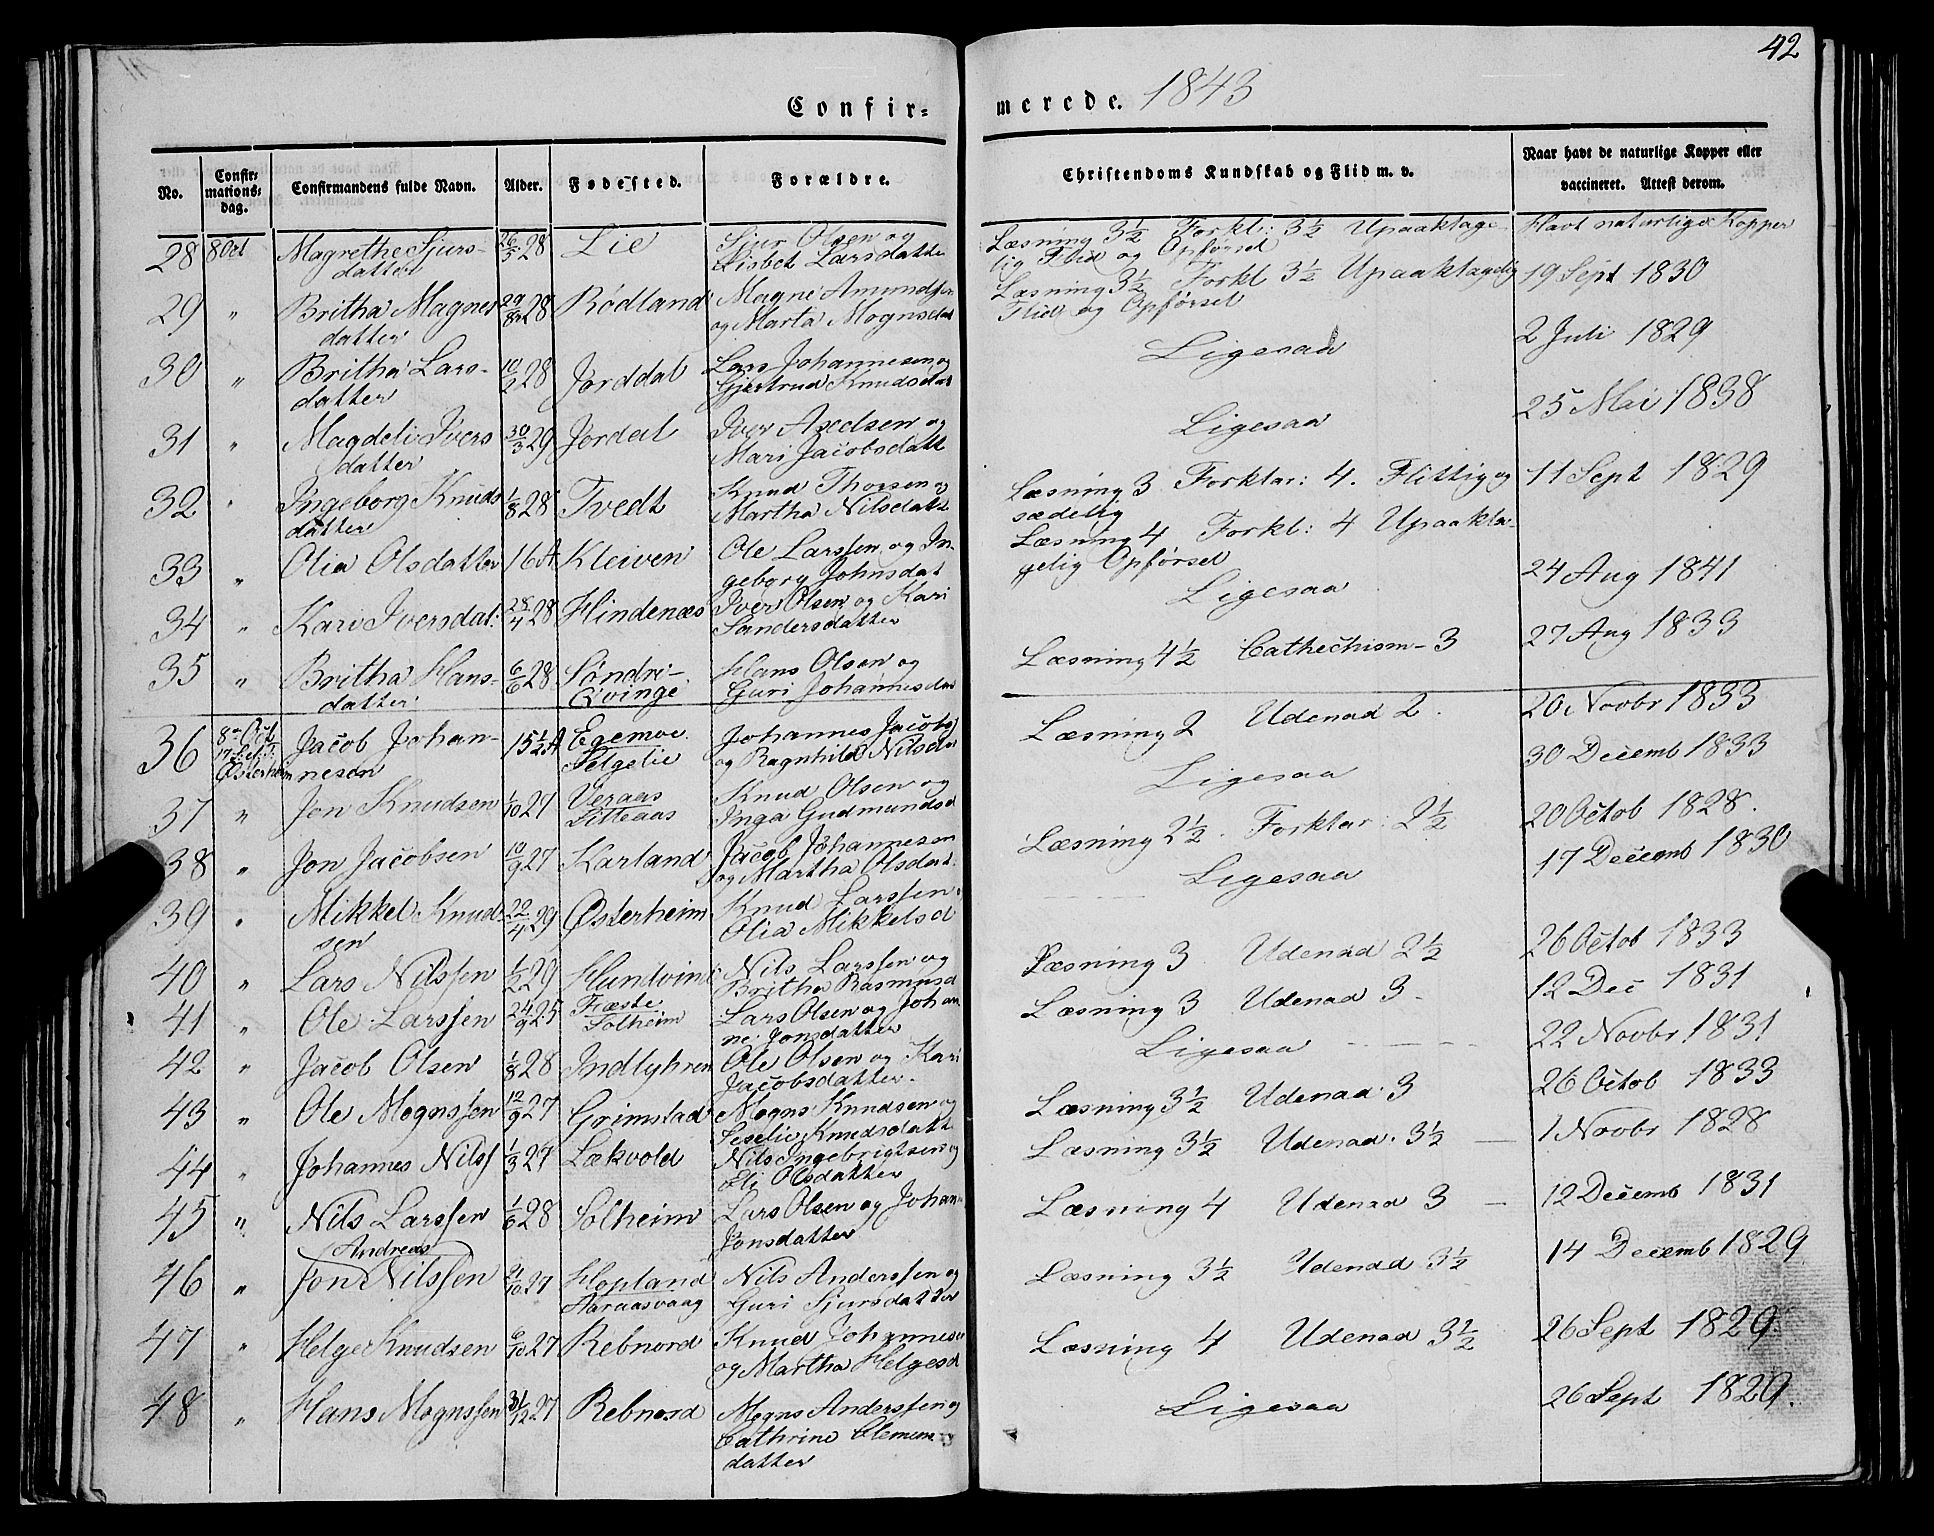 42
Confir-
merede. 1843
No.
Confir-
mations-
dag.
Confirmandens fulde Navn.
Alder.
Fødested.
Forældre.
Christendoms Kundskab og Flid m. v.
Naar havt de naturlige Kopper eller
vaccineret. Attest derom.
28 8 Oct Magrethe Sjurs- 26/5 28 Lie Sjur Olsen og Læsning 3½ Forkl: 3½ Upaaklage- Havt naturlige Kopper
datter Lisbet Larsdatter lig Flid og Opførsel
29 " Britha Magnes 29/8 28 Rødland Magne Amundsen Læsning 3½ Forkl 3½ Upaaklagelig 19 Sept 1830
datter og Marta Mognsdat Flid og Opførsel
30 " Britha Lars- 10/2 28 Jorddal Lars Johannesen og Ligesaa 2 Juli 1829
datter Gjertrud Knudsdat
31 " Magdeli Ivers 30/3 29 Jordal Iver Axelsen og Ligesaa 25 Mai 1838
datter Mari Jacobsdatt
32 " Ingeborg Knuds 1/8 28 Tvedt Knud Thorsen og Læsning 3 Forklar: 4. Flittig og 11 Sept 1829
datter Martha Nilsdatt sædelig
33 " Olia Olsdatter 16 A Kleiven Ole Larssen og In- Læsning 4 Forkl: 4 Upaakla- 24 Aug 1841
geborg Johnsdat gelig Opførsel
34 " Kari Iversdat: 28/4 28 Hindenæs Iver Olsen og Kari Ligesaa 27 Aug 1833
Sandersdatter
35 " Britha Hans- 6/6 28 Søndri- Hans Olsen og Læsning 4½ Cathechism- 3
datter Qvinge Guri Johannesdat 20 Novbr 1833
36 8de Oct Jacob Johan- 15½ A Egemoe Johannes Jacobs Læsning 2 Udenad 2.
Østerheim nesen Felgelie og Ragnhild Nilsdat 30 Decemb 1833
37 " Jon Knudsen 1/10 27 Veraas Knud Olsen og Ligesaa
Litleaas Inga Gudmundsd 20 Octob 1828.
38 " Jon Jacobsen 10/9 27 Karland Jacob Johannesen Læsning 2½. Forklar: 2½
og Martha Olsdat. 17 Decemb 1830
39 " Mikkel Knud- 22/4 29 Østerheim Knud Larssen Ligesaa
sen Olia Mikkelsd
40 " Lars Nilssen 1/2 29 Hundvin Nils Larssen og Læsning 3 Udenad 2½ 26 Octob 1833
Britha Rasmusd
41 " Ole Larssen 24/9 25 Fæste Lars Olsen og Johan Læsning 3 Udenad 3 - 12 Dec 1831
Solheim ne: Jonsdatter
42 " Jacob Olsen 1/8 28 Indlyhren Ole Olsen og Kari Ligesaa 22 Novbr 1831
Jacobsdatter.
43 " Ole Mognssen 12/9 27 Grimstad Mogns Knudsen og Læsning 3½ Udenad 3 26 Octob 1833
Seselie Knudsdatt
44 " Johannes Nilss 1/3 27 Lækvold Nils Ingebrigtsen og Læsning 3½ Udenad. 3½ 1 Novbr 1828
Eli Olsdatter
45 " Nils Larssen 1/6 28 Solheim Lars Olsen og Johan Læsning 4 Udenad 3 - 12 Decemb 1831
Jonsdatter
Andreas
46 " Jon Nilssen 2/10 27 Hopland Nils Anderssen og Læsning 3½ Udenad 3½ 14 Decemb 1829
Aaraasvaag Guri Sjursdatter
47 " Helge Knudsen 6/10 27 Rebnord Knud Johannesen Læsning 4 Udenad 3½ 26 Sept 1829
og Martha Helgesd
48 " Hans Mognssen 31/12 27 Rebnord Mogns Anderssen og Ligesaa 26 Sept 1829.
Cathrine Clemen
datter